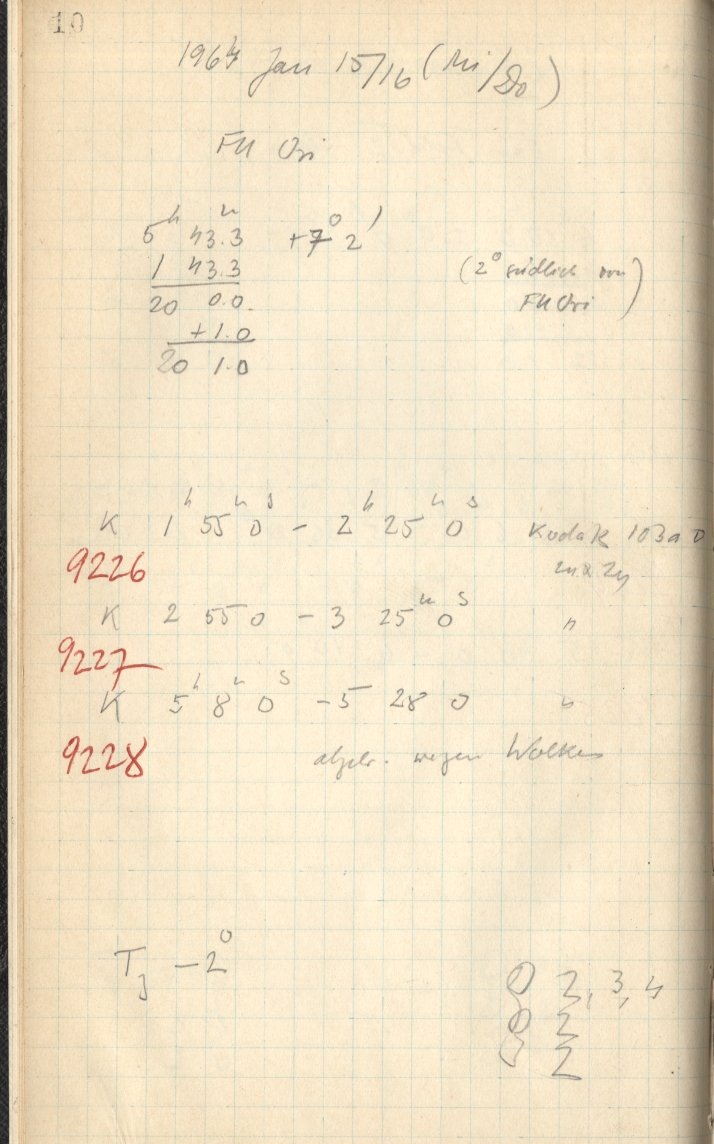 10
1964 Jan 15/16 (Mi/Do)
FU Ori
5h 43.3m +7° 2'
1 43.3
(2° südlich von
20 0.0.
FU Ori)
+1.0
20 1.0
K 1h 55m 0s - 2h 25m 0s Kodak 103a O
9226
K 2 55 0 - 3 25m 0s "
9227
K 5h 8m 0s - 5 28 0 "
9228
abgebr. wegen Wolken
T -2°
2, 3, 4
2
2